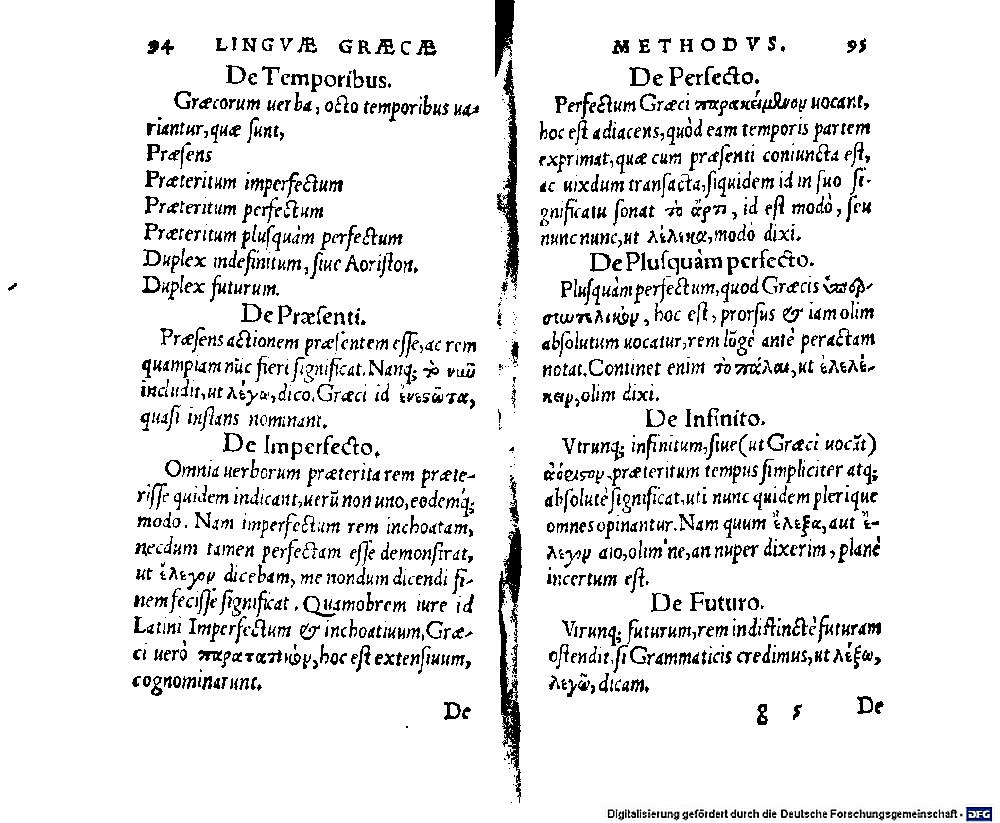 94 LINGVÆ GRÆCÆ
De Temporibus.
Græcorum uerba, octo temporibus ua-
riantur, quæ sunt,
Præsens
Præteritum imperfectum
Præteritum perfectum
Præteritum plusquàm perfectum
Duplex indefinitum, siue Aoriston.
Duplex futurum.
De Præsenti.
Præsens actionem præsentem esse, ac rem
quampiam nūc fieri significat. Nanq; τὸ νιῦ
includit, ut λέγω, dico. Græci id ἐνεστῶτα,
quasi instans nominant.
De Imperfecto.
Omnia uerborum præterita rem præte-
risse quidem indicant, uerū non uno, eodemq́;
modo. Nam imperfectum rem inchoatam,
necdum tamen perfectam esse demonstrat,
ut ἔλεγον dicebam, me nondum dicendi fi-
nem fecisse significat. Quamobrem iure id
Latini Imperfectum & inchoatiuum, Græ-
ci uerò παρατατικὸν, hoc est extensiuum,
cognominarunt.
De
METHODVS. 95
De Perfecto.
Perfectum Græci παρακείμενον uocant,
hoc est adiacens, quòd eam temporis partem
exprimat, quæ cum præsenti coniuncta est,
ac uixdum transacta, siquidem id in suo si-
gnificatu sonat τὸ ἄρτι, id est modò, seu
nunc nunc, ut λέλεκα, modò dixi.
De Plusquàm perfecto.
Plusquàm perfectum, quod Græcis ὑπερ-
συντελικὸν, hoc est, prorsus & iam olim
absolutum uocatur, rem lōgè antè peractam
notat. Continet enim τὸ πάλαι, ut ἐλελέ-
κειν, olim dixi.
De Infinito.
Vtrunq; infinitum, siue (ut Græci uocāt)
ἀόριστον, præteritum tempus simpliciter atq;
absolutè significat, uti nunc quidem plerique
omnes opinantur. Nam quum ἔλεξα, aut ἔ-
λεγον aio, olim'ne, an nuper dixerim, planè
incertum est.
De Futuro.
Vtrunq; futurum, rem indistinctè futuram
ostendit, si Grammaticis credimus, ut λέξω,
λεγῶ, dicam.
g 5 De
Digitalisierung gefördert durch die Deutsche Forschungsgemeinschaft - DFG